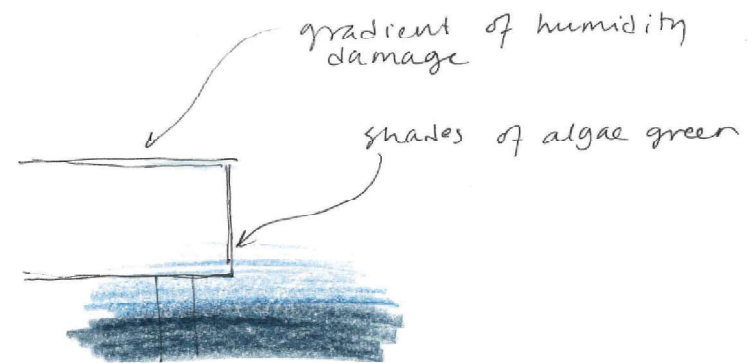 gradient of humidity
damage
shades of algae green